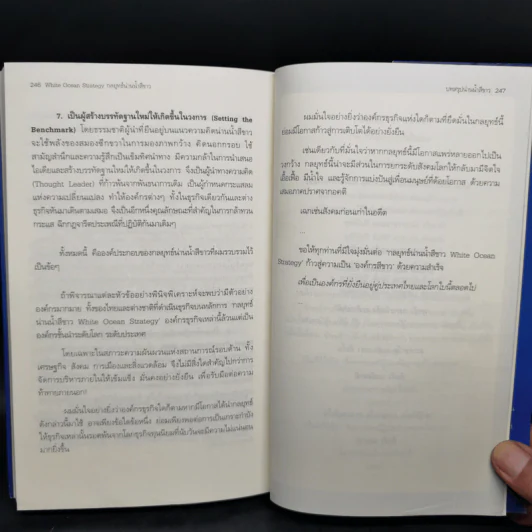 246 White Ocean Strategy กลยุทธ์น่านน้ำสีขาว
7. เป็นผู้สร้างบรรทัดฐานใหม่ให้เกิดขึ้นในวงการ (Setting the
Benchmark) โดยธรรมชาติผู้นำที่ยืนอยู่บนแนวความคิดน่านน้ำสีขาว
จะใช้พลังของสมองซีกขวาในการมองภาพกว้าง คิดนอกกรอบ ใช้
สามัญสำนึกและความรู้สึกเป็นเข็มทิศนำทาง มีความกล้าในการนำเสนอ
ไอเดียและสร้างบรรทัดฐานใหม่ให้เกิดขึ้นในวงการ จึงเป็นผู้นำทางความคิด
(Thought Leader) ที่ก้าวพ้นจากพันธนาการเดิม เป็นผู้กำหนดกระแสทอน
แห่งความเปลี่ยนแปลง ทำให้องค์กรต่างๆ ทั้งในธุรกิจเดียวกันและต่าง
ธุรกิจหันมาเดินตามเสมอ จึงเป็นอีกหนึ่งคุณลักษณะที่สำคัญในการกล้าทวน
กระแส ฉีกกฎจารีตประเพณีที่ปฏิบัติกันมาเดิมๆ
ทั้งหมดนี้ คือองค์ประกอบของกลยุทธ์น่านน้ำสีขาวที่ผมรวบรวมไว้
เป็นข้อๆ
ถ้าพิจารณาแต่ละหัวข้ออย่างพินิจพิเคราะห์จะพบว่ามีตัวอย่าง
องค์กรมากมาย ทั้งของไทยและต่างชาติที่ดำเนินธุรกิจบนหลักการ 'กลยุทธ์
น่านน้ำสีขาว White Ocean Strategy' องค์กรธุรกิจเหล่านี้ล้วนแต่เป็น
องค์กรชั้นนำระดับโลก ระดับประเทศ
โดยเฉพาะในสภาวะความผันผวนแห่งสถานการณ์รอบด้าน ทั้ง
เศรษฐกิจ สังคม การเมืองและสิ่งแวดล้อม จึงไม่มีสิ่งใดสำคัญไปกว่าการ
จัดการบริหารภายในให้เข้มแข็ง มั่นคงอย่างยั่งยืน เพื่อรับมือต่อความ
ท้าทายภายนอก!
ผมมั่นใจอย่างยิ่งว่าองค์กรธุรกิจใดก็ตามหากมีโอกาสได้นำกลยุทธ์
ดังกล่าวนี้มาใช้ อาจเพียงข้อใดข้อหนึ่ง ย่อมเพียงพอต่อการเป็นเกราะกำบัง
ให้ธุรกิจเหล่านั้นรอดพ้นจากโลกธุรกิจทุนนิยมที่นับวันจะมีความไม่แน่นอน
มากยิ่งขึ้น
บทสรุปน่านน้ำสีขาว 247
ผมมั่นใจอย่างยิ่งว่าองค์กรธุรกิจแห่งใดก็ตามที่ยึดมั่นในกลยุทธ์นี้
ย่อมมีโอกาสก้าวสู่การเติบโตได้อย่างยั่งยืน
เช่นเดียวกับที่มั่นใจว่าหากกลยุทธ์นี้มีโอกาสแพร่หลายออกไปเป็น
วงกว้าง กลยุทธ์นี้น่าจะมีส่วนในการยกระดับสังคมโลกให้กลับมามีจิตใจ
เอื้อเฟื้อ มีน้ำใจ และรู้จักการแบ่งปันสู่เพื่อนมนุษย์ที่ด้อยโอกาส ด้วยความ
เสมอภาคปราศจากอคติ
เฉกเช่นสังคมก่อนเก่าในอดีต
...
ขอให้ทุกท่านที่มีใจมุ่งมั่นต่อ 'กลยุทธ์น่านน้ำสีขาว White Ocean
Strategy' ก้าวสู่ความเป็น 'องค์กรสีขาว' ด้วยความสำเร็จ
เพื่อเป็นองค์กรที่ยั่งยืนอยู่คู่ประเทศไทยและโลกใบนี้ตลอดไป